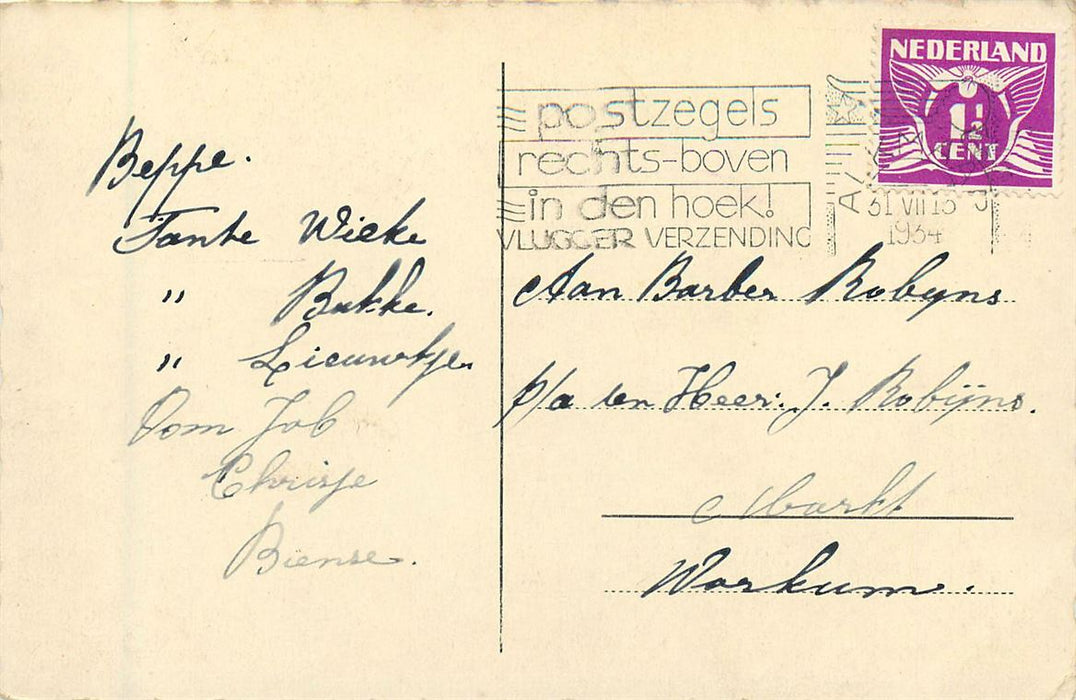 NEDERLAND
1½
CENT
postzegels
rechts-boven
in den hoek!
VLUGGER VERZENDING
31 VII 13
1934
Beppe.
Tante Wieke
" Bukke.
" Lieuwkje
Oom Job
Chrisje
Biense.
Aan Barber Robyns
p/a den Heer. J. Robijns.
Markt
Workum.